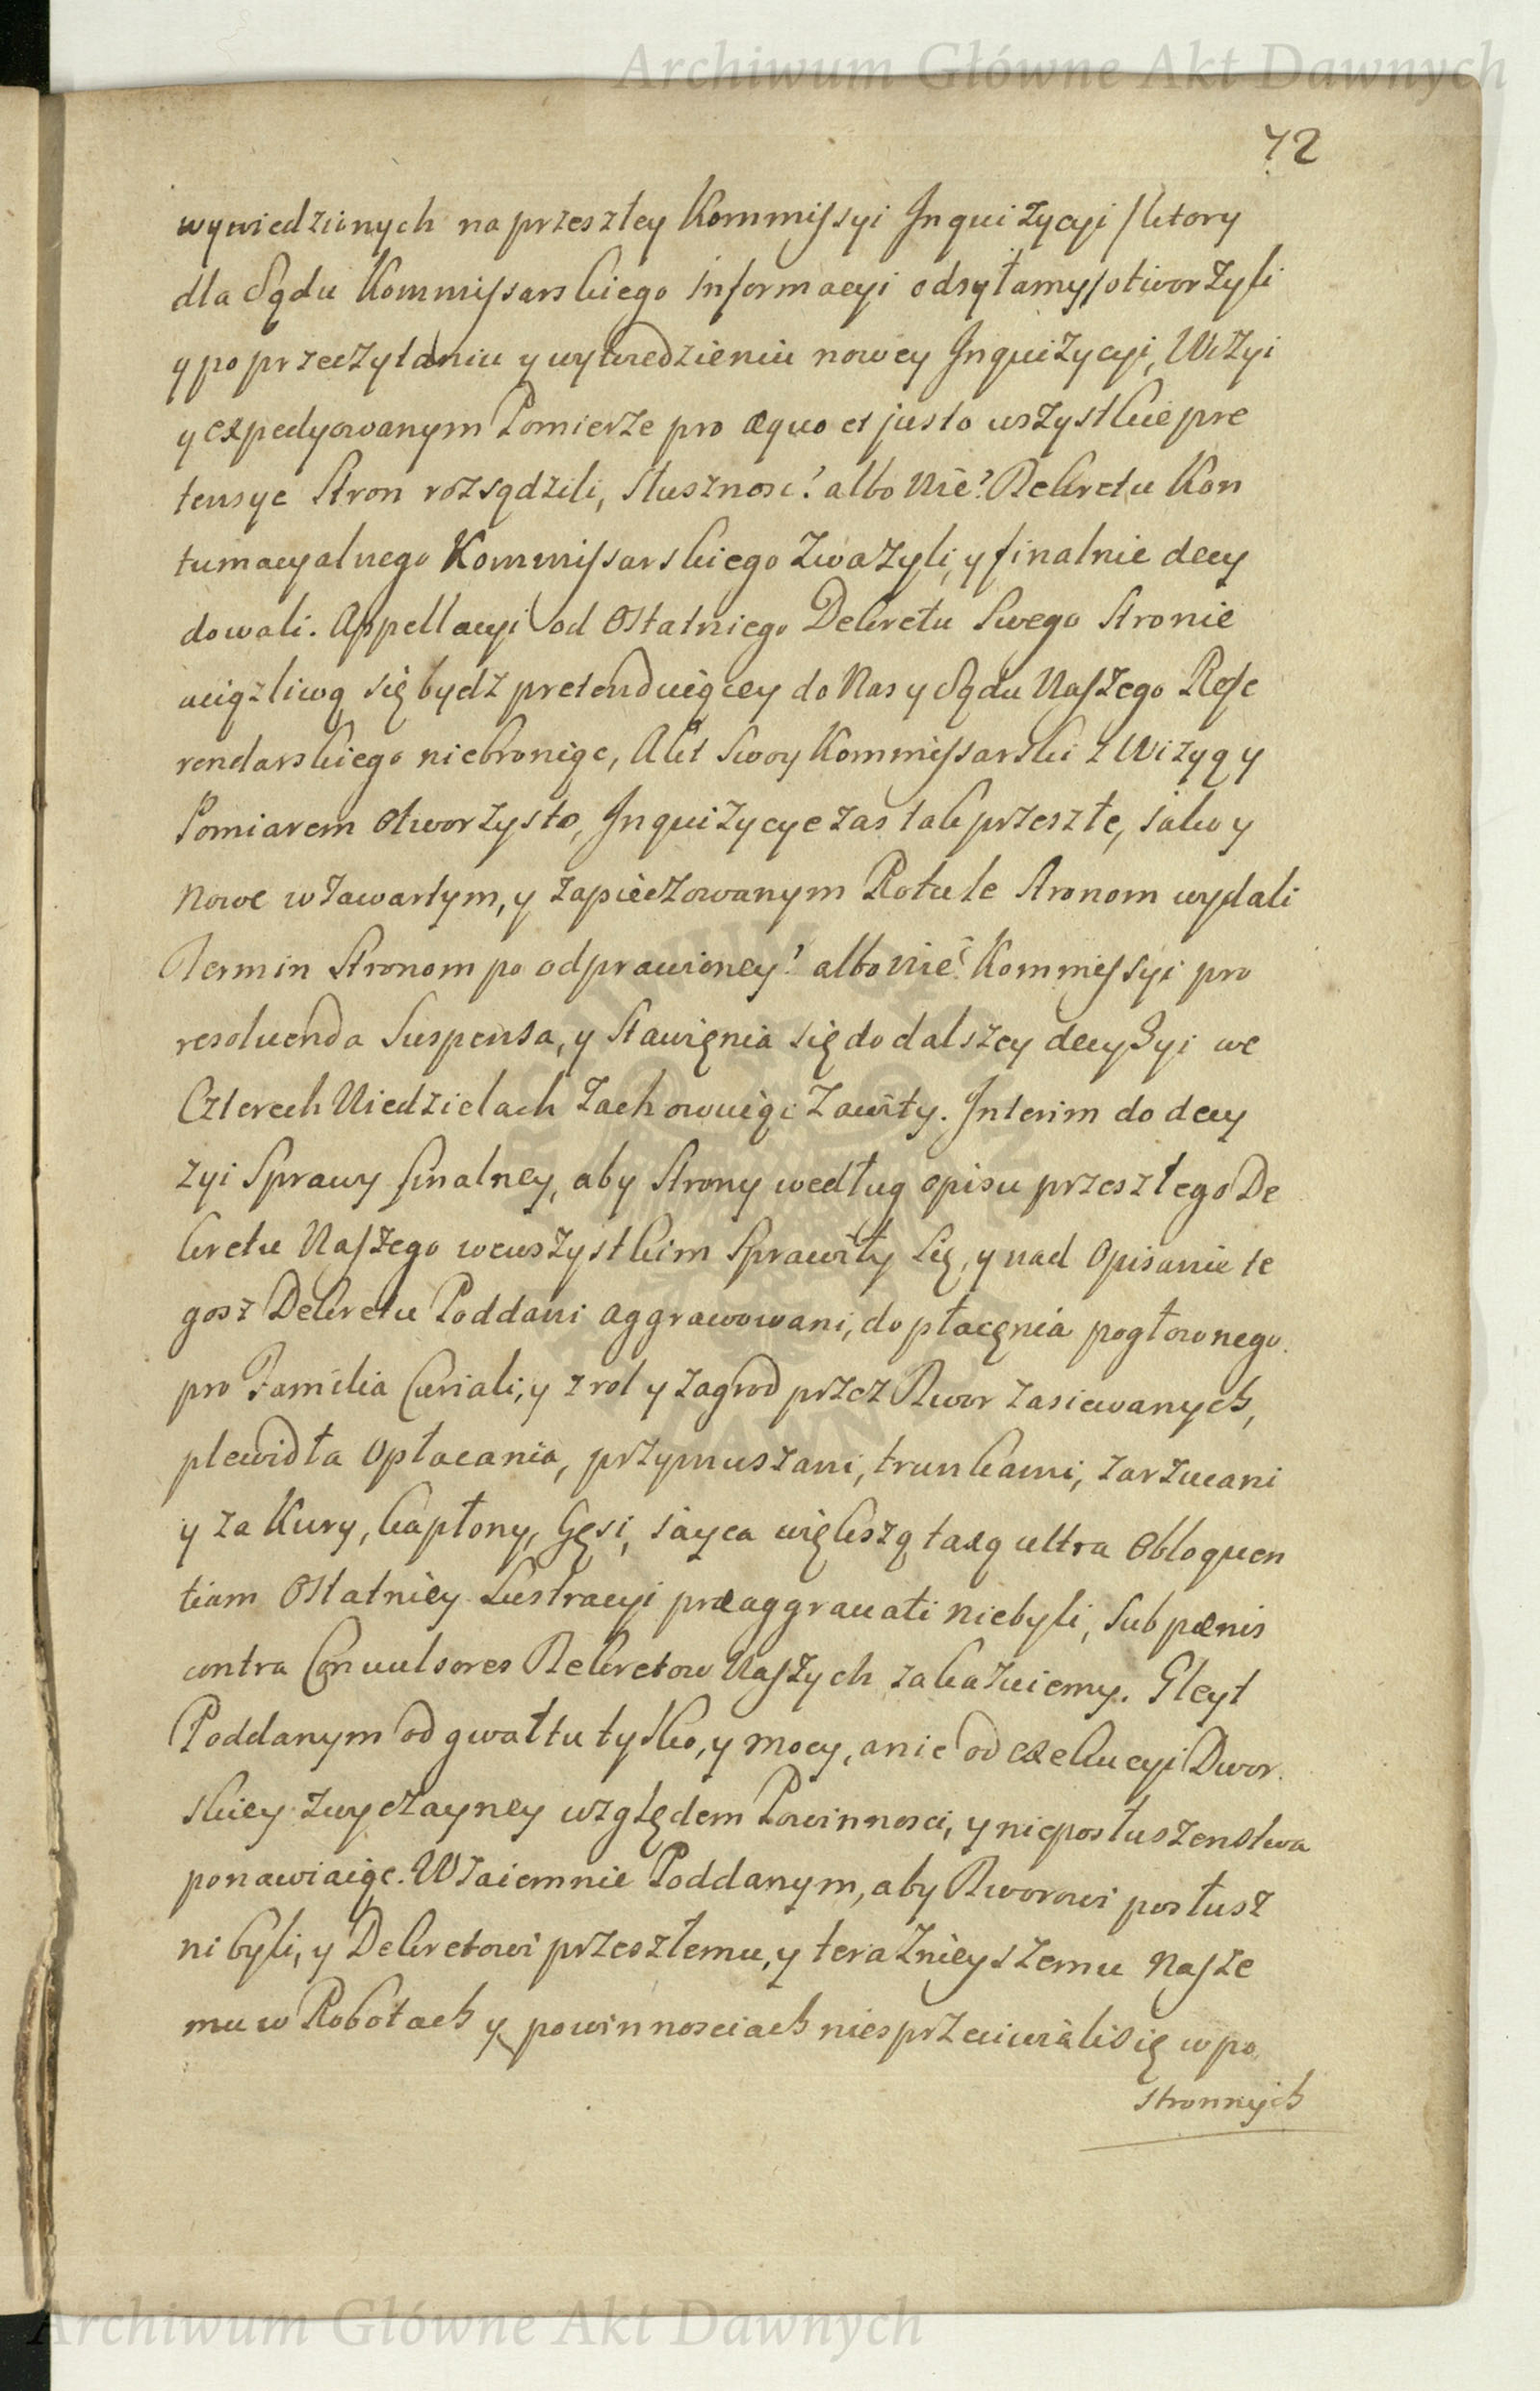 Archiwum Główne Akt Dawnych
72
wywiedzionych na przeszłey Kommissyi Inquizycyi /ktory
dla Sądu Kommissarskiego informacyi odsyłamy/otworzyli
y po przeczytaniu y wywiedzieniu nowey Inquizycyi, Wizyi
y expedyowanym Pomierze pro æquo et justo wszystkie pre
tensye Stron rozsądzili, słusznosc? albo nie? Dekretu Kon
tumacyalnego Kommissarskiego zwazyli, y finalnie decy
dowali. Appellacyi od Ostatniego Dekretu Swego Stronie
uciązliwą się bydz pretenduiącey do Nas y Sądu Naszego Refe
rendarskiego niebroniąc, Akt Swoy Kommissarski z Wizyą y
Pomiarem otworzysto, Inquizycye zas tak przeszłe, iako y
nowe w zawartym, y zapieczowanym Rotule Stronom wydali
Termin Stronom po odprawioney? albo nie? Kommissyi pro
resoluenda Suspensa, y Stawięnia się do dalszey decyzyi we
Czterech Niedzielach zachowuiąc Zawity. Interim do decy
zyi Sprawy finalney, aby Strony według opisu przeszłego De
kretu Naszego wewszystkim Sprawiły się, y nad Opisanie te
gosz Dekretu Poddani aggrawowani, do płacęnia pogłownego
pro Familia Curiali, y z rol y zagrod przez Dwor zasiewanych,
plewidła opłacania, przymuszani, trunkami, zarzucani
y za Kury, kapłony, Gęsi, iayca większą taxą ultra obloquen
tiam Ostatniey Lustracyi præaggrauati niebyli, Sub pænis
contra Conuulsores Dekretow Naszych zakazuiemy. Gleyt
Poddanym od gwałtu tylko, y mocy, a nie od exekucyi Dwor
skiey zwyczayney względem Powinnosci, y nieposłuszenstwa
ponawiaiąc. Wzaiemnie Poddanym, aby Dworowi posłusz
ni byli, y Dekretowi przeszłemu, y teraznieyszemu Nasze
mu w Robotach y powinnosciach niesprzeciwialisię w po
stronnych
Archiwum Główne Akt Dawnych